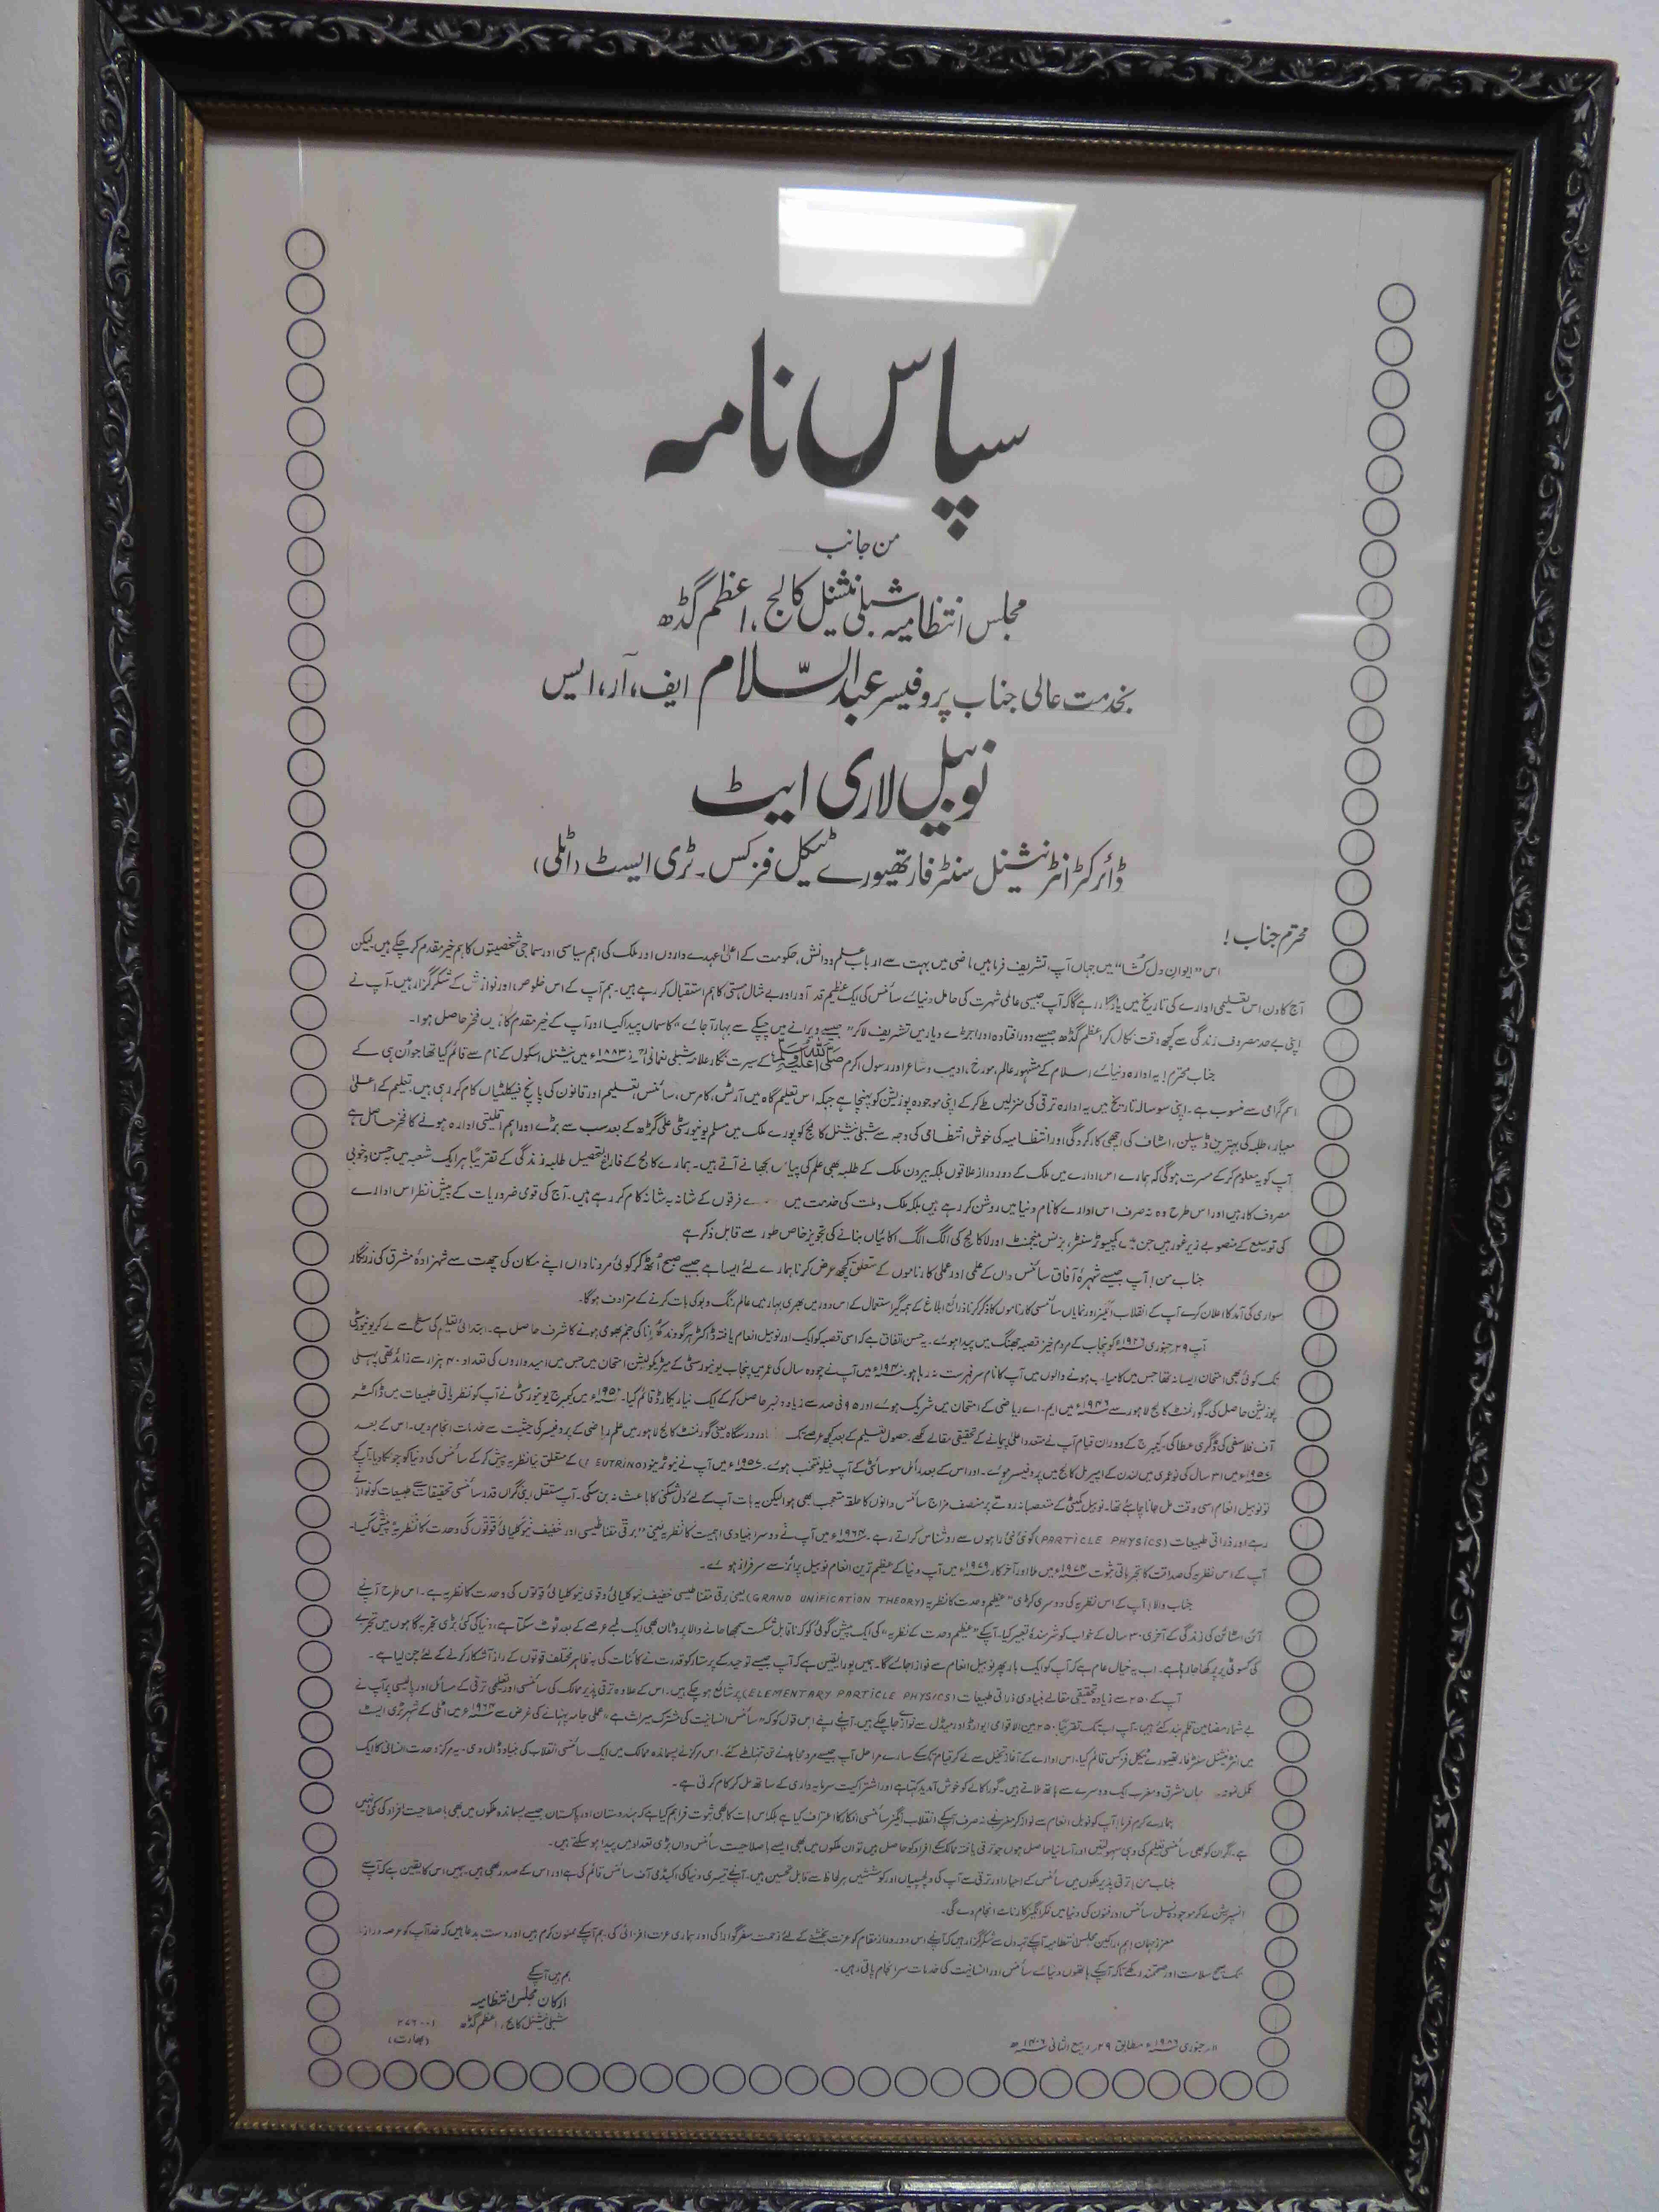 سپاس نامہ
من جانب
مجلس انتظامیہ شبلی نیشنل کالج، اعظم گڈھ
بخدمت عالی جناب پروفیسر عبدالسّلام ایف، آر، ایس
نوبیل لاری ایٹ
ڈائرکٹر انٹرنیشنل سنٹر فار تھیورے ٹیکل فزکس۔ ٹری ایسٹ (اٹلی)
محترم جناب!
اس "ایوانِ دل کُشا" میں جہاں آپ تشریف فرما ہیں ماضی میں بہت سے اربابِ علم و دانش، حکومت کے اعلیٰ عہدے داروں اور ملک کی اہم سیاسی اور سماجی شخصیتوں کا ہم خیر مقدم کر چکے ہیں لیکن
آج کا دن اس تعلیمی ادارے کی تاریخ میں یادگار رہے گا کہ آپ جیسی عالمی شہرت کی حامل دنیائے سائنس کی ایک عظیم قد آور اور بے مثال ہستی کا ہم استقبال کر رہے ہیں۔ ہم آپ کے اس خلوص اور نوازش کے شکر گزار ہیں۔ آپ نے
اپنی بے حد مصروف زندگی سے کچھ وقت نکال کر اعظم گڈھ جیسے دور افتادہ اور اجڑے دیار میں تشریف لا کر "جیسے ویرانے میں چپکے سے بہار آجائے" کا سماں پیدا کیا اور آپ کے خیر مقدم کا ہمیں فخر حاصل ہوا۔
جناب محترم! یہ ادارہ دنیائے اسلام کے مشہور عالم، مورخ، ادیب و شاعر اور رسول اکرم صلی اللہ علیہ وسلم کے سیرت نگار علامہ شبلی نعمانی نے ۱۸۸۳ء میں نیشنل اسکول کے نام سے قائم کیا تھا جو اُن ہی کے
اسم گرامی سے منسوب ہے۔ اپنی سو سالہ تاریخ میں یہ ادارہ ترقی کی منزلیں طے کر کے اپنی موجودہ پوزیشن کو پہنچا ہے جبکہ اس تعلیم گاہ میں آرٹس، کامرس، سائنس، تعلیم اور قانون کی پانچ فیکلٹیاں کام کر رہی ہیں۔ تعلیم کے اعلیٰ
معیار، طلبہ کی بہترین ڈسپلن، اسٹاف کی اچھی کارکردگی اور انتظامیہ کی خوش انتظامی کی وجہ سے شبلی نیشنل کالج کو پورے ملک میں مسلم یونیورسٹی علی گڑھ کے بعد سب سے بڑے اور اہم اقلیتی ادارہ ہونے کا فخر حاصل ہے
آپ کو یہ معلوم کر کے مسرت ہوگی کہ ہمارے اس ادارے میں ملک کے دور دراز علاقوں بلکہ بیرون ملک کے طلبہ بھی علم کی پیاس بجھانے آتے ہیں۔ ہمارے کالج کے فارغ التحصیل طلبہ زندگی کے تقریباً ہر ایک شعبہ میں بحسن و خوبی
مصروف کار ہیں اور اس طرح وہ نہ صرف اس ادارے کا نام دنیا میں روشن کر رہے ہیں بلکہ ملک و ملت کی خدمت میں فرقوں کے شانہ بہ شانہ کام کر رہے ہیں۔ آج کی قومی ضروریات کے پیش نظر اس ادارے
کی توسیع کے منصوبے زیر غور ہیں جن میں کمپیوٹر سنٹر، بزنس مینجمنٹ اور لاء کالج کی الگ الگ اکائیاں بنانے کی تجویز خاص طور سے قابل ذکر ہے
جناب من! آپ جیسے شہرۂ آفاق سائنس داں کے علمی اور عملی کارناموں کے متعلق کچھ عرض کرنا ہمارے لئے ایسا ہے جیسے صبح اُٹھ کر کوئی مرد ناداں اپنے مکان کی چھت سے شہزادۂ مشرق کی زرنگار
سواری کی آمد کا اعلان کرے آپ کے انقلاب انگیز اور نمایاں سائنسی کارناموں کا ذکر کرنا ذرائع ابلاغ کے ہمہ گیر استعمال کے اس دور میں بھری بہار میں عالم رنگ و بو کی بات کرنے کے مترادف ہوگا۔
آپ ۲۹ جنوری ۱۹۲۶ء کو پنجاب کے مردم خیز قصبہ جھنگ میں پیدا ہوئے۔ یہ حسن اتفاق ہے کہ اسی قصبہ کو ایک اور نوبیل انعام یافتہ ڈاکٹر ہرگووند کھُرانا کی جنم بھومی ہونے کا شرف حاصل ہے۔ ابتدائی تعلیم کی سطح سے لے کر یونیورسٹی
تک کوئی بھی امتحان ایسا نہ تھا جس میں کامیاب ہونے والوں میں آپ کا نام سر فہرست نہ رہا ہو۔ ۱۹۴۰ء میں آپ نے چودہ سال کی عمر میں پنجاب یونیورسٹی کے میٹریکولیشن امتحان میں جس میں امیدواروں کی تعداد ۴۰ ہزار سے زائد تھی پہلی
پوزیشن حاصل کی۔ گورنمنٹ کالج لاہور سے ۱۹۴۶ء میں ایم۔ اے ریاضی کے امتحان میں شریک ہوئے اور ۹۵ فی صد سے زیادہ نمبر حاصل کر کے ایک نیا ریکارڈ قائم کیا۔ ۱۹۵۲ء میں کیمبرج یونیورسٹی نے آپ کو نظریاتی طبیعات میں ڈاکٹر
آف فلاسفی کی ڈگری عطا کی۔ کیمبرج کے دوران قیام آپ نے متعدد اعلیٰ پیمانے کے تحقیقی مقالے لکھے۔ حصول تعلیم کے بعد کچھ عرصے تک مادر درسگاہ یعنی گورنمنٹ کالج لاہور میں علم ریاضی کے پروفیسر کی حیثیت سے خدمات انجام دیں۔ اس کے بعد
۱۹۵۷ء میں ۳۱ سال کی نو عمری میں لندن کے امپیریل کالج میں پروفیسر ہوئے۔ اور اس کے بعد رائل سوسائٹی کے آپ فیلو منتخب ہوئے۔ ۱۹۵۷ء میں آپ نے نیوٹرینو (EUTRINO) کے متعلق نیا نظریہ پیش کر کے سائنس کی دنیا کو چونکا دیا۔ آپ کو
تو نوبیل انعام اسی وقت مل جانا چاہئے تھا۔ نوبیل کمیٹی کے متعصبانہ رویے پر منصف مزاج سائنس دانوں کا حلقہ متعجب بھی ہوا لیکن یہ بات آپ کے لئے دل شکنی کا باعث نہ بن سکی۔ آپ مستقل اپنی گراں قدر سائنسی تحقیقات سے طبیعات کو نوازتے
رہے اور ذراتی طبیعات (PARTICLE PHYSICS) کو نئی نئی راہوں سے روشناس کراتے رہے۔ ۱۹۶۴ء میں آپ نے دوسرا بنیادی اہمیت کا نظریہ یعنی "برقی مقناطیسی اور خفیف نیوکلیائی قوتوں کی وحدت کا نظریہ" پیش کیا۔
آپ کے اس نظریہ کی صداقت کا تجرباتی ثبوت ۱۹۷۳ء میں ملا اور آخر کار ۱۹۷۹ء میں آپ دنیا کے عظیم ترین انعام نوبیل پرائز سے سرفراز ہوئے۔
جناب والا! آپ کے اس نظریہ کی دوسری کڑی "عظیم وحدت کا نظریہ (GRAND UNIFICATION THEORY) یعنی برقی مقناطیسی خفیف نیوکلیائی و قوی نیوکلیائی قوتوں کی وحدت کا نظریہ ہے۔ اس طرح آپ نے
آئن اسٹائن کی زندگی کے آخری ۳۰ سال کے خواب کو شرمندۂ تعبیر کیا۔ آپ کے "عظیم وحدت کے نظریہ" کی ایک پیشن گوئی کو کہ ناقابل شکست سمجھا جانے والا پروٹان بھی ایک لمبے عرصے کے بعد ٹوٹ سکتا ہے، دنیا کی کئی بڑی تجربہ گاہوں میں تجربے
کی کسوٹی پر پرکھا جا رہا ہے۔ اب یہ خیال عام ہے کہ آپ کو ایک بار پھر نوبیل انعام سے نوازا جائے گا۔ ہمیں پورا یقین ہے کہ آپ جیسے توحید کے پرستار کو قدرت نے کائنات کی بہ ظاہر مختلف قوتوں کے راز آشکار کرنے کے لئے چن لیا ہے۔
آپ کے ۲۵۰ سے زیادہ تحقیقی مقالے بنیادی ذراتی طبیعات (ELEMENTARY PARTICLE PHYSICS) پر شائع ہو چکے ہیں۔ اس کے علاوہ ترقی پذیر ممالک کی سائنسی اور تعلیمی ترقی کے مسائل اور پالیسی پر آپ نے
بے شمار مضامین قلم بند کئے ہیں۔ آپ اب تک تقریباً ۲۵۰ بین الاقوامی ایوارڈ اور میڈل سے نوازے جا چکے ہیں۔ آپ نے اپنے اس قول کو کہ "سائنس انسانیت کی مشترک میراث ہے" عملی جامہ پہنانے کی غرض سے ۱۹۶۴ء میں اٹلی کے شہر ٹری ایسٹ
میں انٹرنیشنل سنٹر فار تھیورے ٹیکل فزکس قائم کیا، اس ادارے کے آغاز تخیل سے لے کر قیام تک کے سارے مراحل آپ جیسے مرد مجاہد نے تن تنہا طے کئے۔ اس مرکز نے پسماندہ ممالک میں ایک سائنسی انقلاب کی بنیاد ڈال دی۔ یہ مرکز وحدت انسانی کا ایک
مکمل نمونہ۔ یہاں مشرق و مغرب ایک دوسرے سے ہاتھ ملاتے ہیں۔ گورا کالے کو خوش آمدید کہتا ہے اور اشتراکیت سرمایہ داری کے ساتھ مل کر کام کرتی ہے۔
ہمارے کرم فرما! آپ کو نوبل انعام سے نواز کر مغرب نے نہ صرف آپ کے انقلاب انگیز سائنسی افکار کا اعتراف کیا ہے بلکہ اس بات کا بھی ثبوت فراہم کیا ہے کہ ہندوستان اور پاکستان جیسے پسماندہ ملکوں میں بھی باصلاحیت افراد کی کمی نہیں
ہے۔ اگر ان کو بھی سائنسی تعلیم کی وہی سہولتیں اور آسانیاں حاصل ہوں جو ترقی یافتہ ممالک کے افراد کو حاصل ہیں تو ان ملکوں میں بھی ایسے باصلاحیت سائنس داں بڑی تعداد میں پیدا ہو سکتے ہیں۔
جناب من! ترقی پذیر ملکوں میں سائنس کے احیاء اور ترقی سے آپ کی دلچسپیاں اور کوششیں ہر لحاظ سے قابل تحسین ہیں۔ آپ نے تیسری دنیا کی اکیڈمی آف سائنس قائم کی ہے اور اس کے صدر بھی ہیں۔ ہمیں اس کا یقین ہے کہ آپ سے
انسپریشن لے کر موجودہ نسل سائنس اور فنون کی دنیا میں فکر انگیز کارنامے انجام دے گی۔
معزز مہمان! ہم اراکین مجلس انتظامیہ آپ کے تہہ دل سے شکر گزار ہیں کہ آپ نے اس دور دراز مقام کو عزت بخشنے کے لئے زحمت سفر گوارا کی اور ہماری عزت افزائی کی۔ ہم آپ کے ممنون کرم ہیں اور دست بدعا ہیں کہ خدا آپ کو عرصہ دراز
تک صحیح سلامت اور صحتمند رکھے تاکہ آپ کے ہاتھوں دنیائے سائنس اور انسانیت کی خدمات سرانجام پاتی رہیں۔
ہم ہیں آپ کے
ارکان مجلس انتظامیہ
شبلی نیشنل کالج، اعظم گڈھ ۲۷۶۰۰۱
(بھارت)
۱۱؍ جنوری ۱۹۸۶ء مطابق ۲۹؍ ربیع الثانی ۱۴۰۶ھ